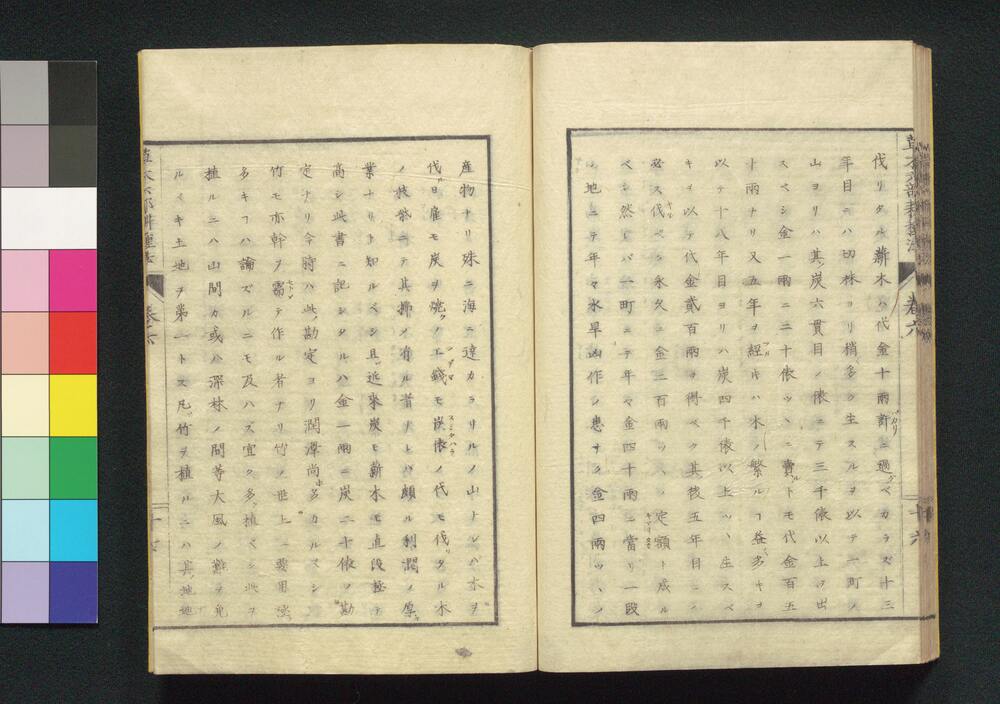 草木六部耕種法 卷六 十六
伐リタル薪木ハ代金十兩許ニ過グベカラズ十三
年目ニハ切株ヨリ梢多ク生スルヲ以テ一町ノ
山ヨリハ其炭六貫目ノ俵ニテ三千俵以上ヲ出
スベシ金一兩ニ二十俵ツヽニ賣ルトモ代金百五
十兩ナリ又五年ヲ經レハ木ノ繁ルヿ益多キヲ
以テ十八年目ヨリハ炭四千俵以上ツヽ生スベ
キヲ以テ代金貳百兩ヲ得ベク其後五年目ニシ
必ス伐ベシ永久ニ金二百兩ツヽノ定額ト成ル
ベシ然レバ一町ニテ年々金四十兩ニ當リ一段
ノ地ニテ年々水旱凶作ノ患ナク金四兩ツヽノ
産物ナリ殊ニ海ニ遠カラサルノ山ナレバ木ヲ
伐ル日雇モ炭ヲ燒クノ工錢モ炭俵ノ代モ伐リタル木
ノ枝葉ニテ其拂ノ有ル者ナレバ頗ル利潤ノ厚キ
業ナリト知ルベシ且ツ近來炭モ薪木モ直段極テ
高シ此書ニ記シタルハ金一兩ニ炭二十俵ツヽノ勘
定ナリ今時ハ此勘定ヨリ潤澤尚ホ多カルヘシ
竹モ亦幹ヲ需テ作ル者ナリ竹ノ世上ニ要用
多キヿハ論ズルニモ及ハズ宜ク多ク植ベシ此ヲ
植ルニハ山間カ或ハ深林ノ間等大風ノ難ヲ免
ルベキ土地ヲ第一トス凡ソ竹ヲ植ルニハ其地